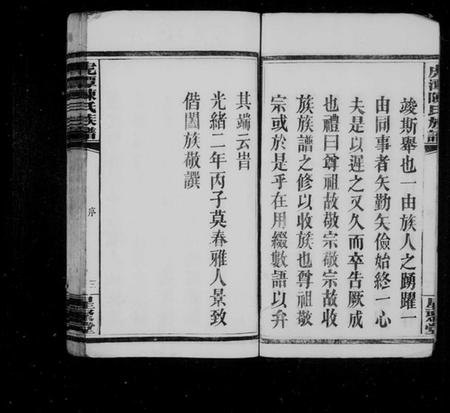 虎潭陳氏族譜
竣斯舉也一由族人之踴躍一
由同事者矢勤矢儉始終一心
夫是以遲之又久而卒告厥成
也禮曰尊祖故敬宗敬宗故收
族族譜之修以收族也尊祖敬
宗或於是乎在用綴數語以弁
星聚堂
其端云旹
光緒二年丙子莫春雅人景致
偕閤族敬譔
虎潭陳氏族譜
序
三
星聚堂